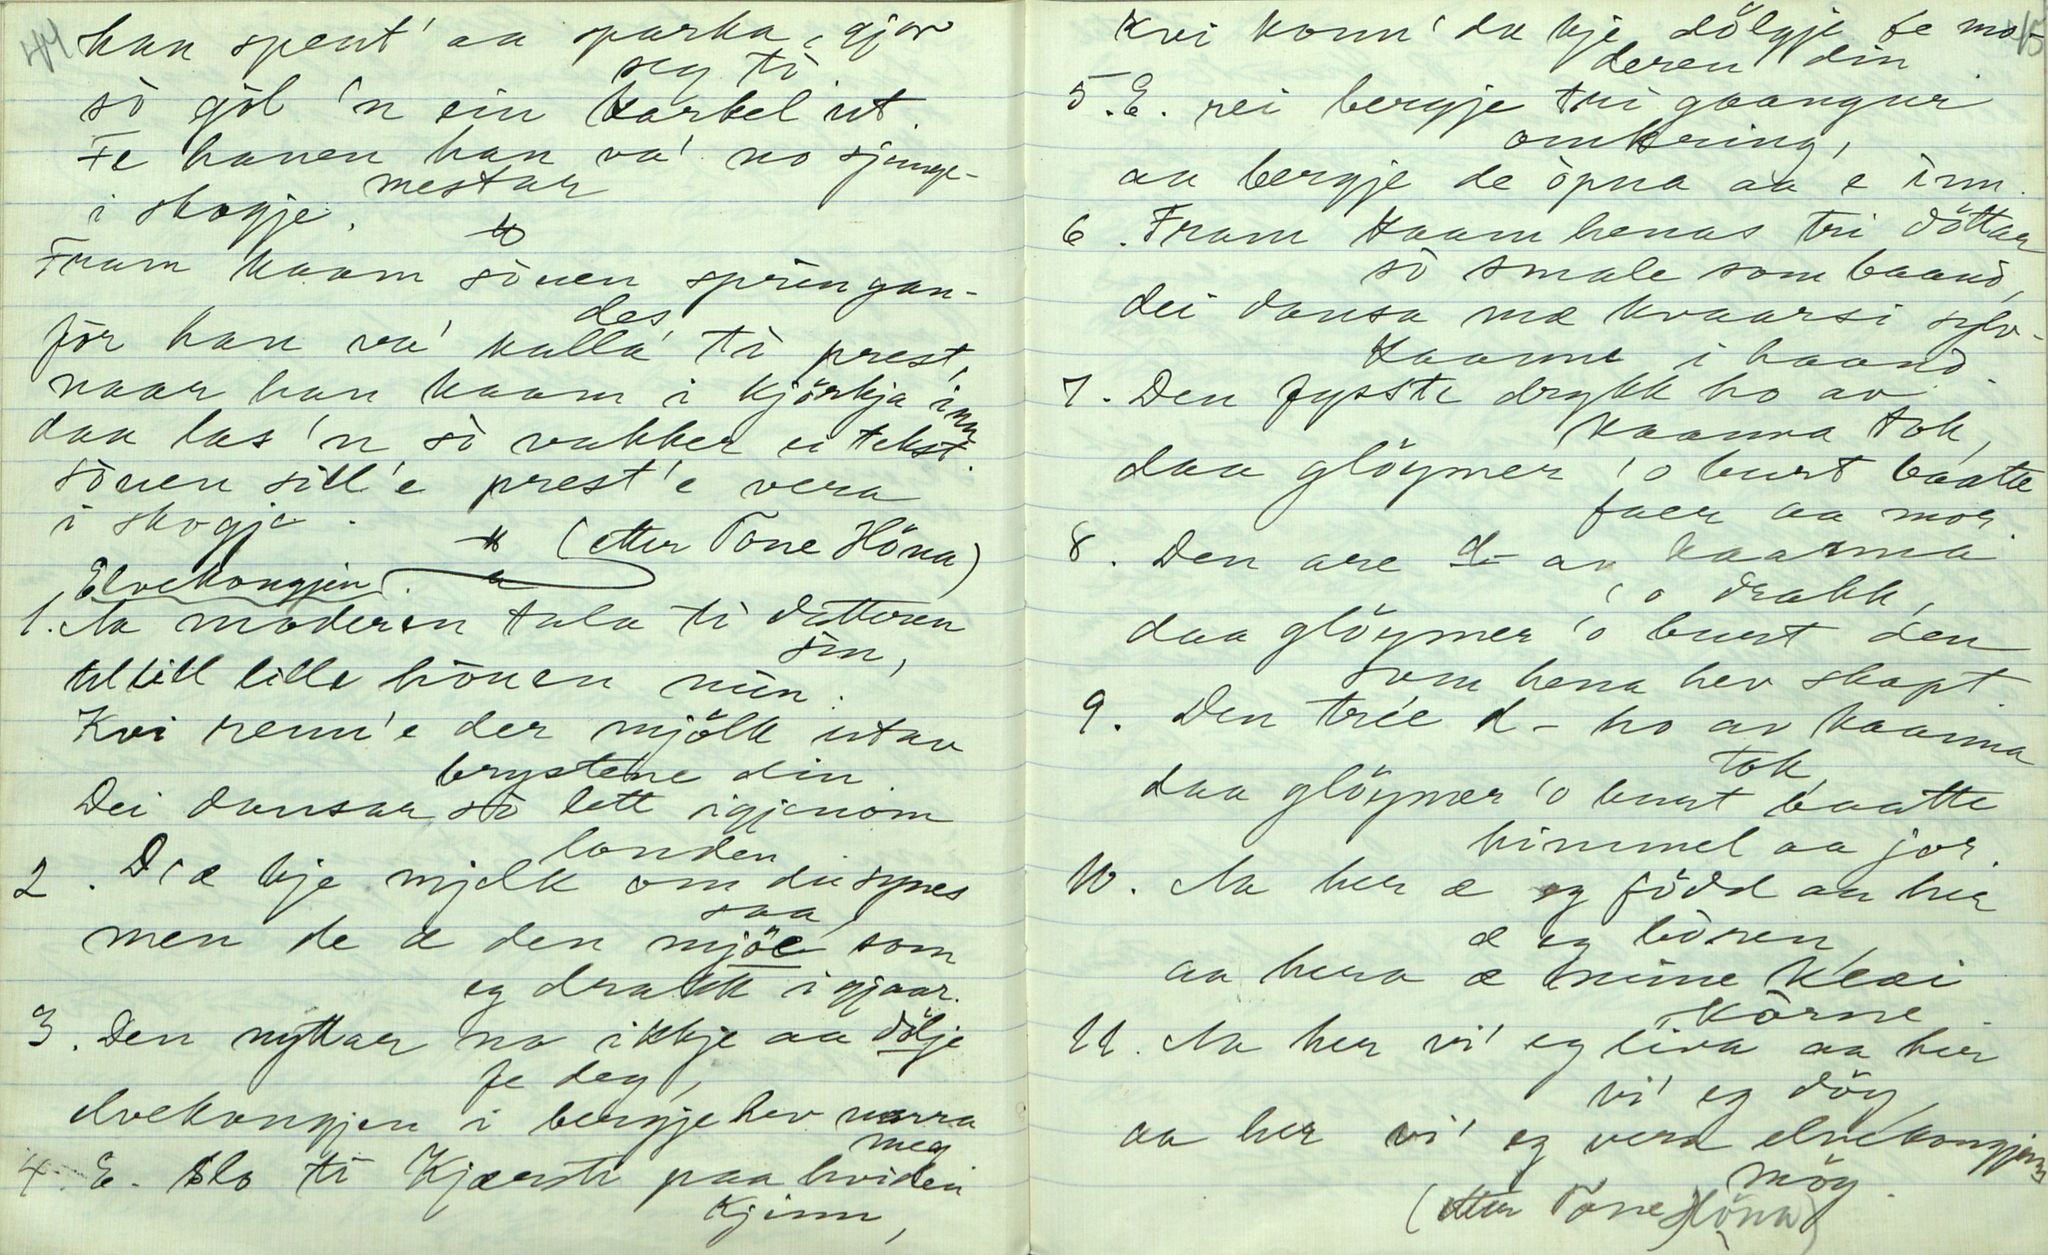 44
han spent' aa sparka, gjor
seg ti
so gól 'n ein karkel ut.
Fe hanen han va' no sjunge-
mestar
i skogje.
Fram kaam sönen springan-
des
för han va' kalla' ti prest,
naar han kaam i kjörkja inn
daa las 'n so vakker ei tekst.
sönen sill'e prest'e vera
i skogje.
(etter Tone Höna)
Elvekongjen.
1. Aa moderen tala ti datteren
sin,
till lille hönen min.
Kvi renn'e der mjölk utav
brystene din
Dei dansar so lett igjenom
landen
2. D'æ kje mjelk om du synes
saa
men de æ den mjöe' som
eg drakk igjaar.
3. Den nyttar no ikkje aa dölje
fe deg,
elvekongjen i bergje hev narra
meg
4. E. slo ti Kjærsti paa hviden
kjinn,
45
Kvi konn' du kje dölgje fe mo-
deren din
5. E. rei bergje tri gaangur
omkring,
aa bergje de opna aa e inn.
6. Fram kaam henas tri döttar
so smale som baand,
dei dansa mæ kvaarsi sylv-
kaanne i haand.
7. Den fysste drykk ho av
kaanna tok,
daa glöymer 'o burt baatte
faer aa mor
8. Den are d- av kaanna
'o drakk,
daa glöymer 'o burt den
som hena hev skapt
9. Den trée d- ho av kaanna
tok
daa glöymer 'o burt baatte
himmel aa jor.
10. Aa her æ eg född aa her
æ eg boren,
aa hera æ mine klæi
skorne.
11. Aa her vi' eg liva aa her
vi' eg döy
aa her vi' eg vera elvekongjens
möy.
(etter Tone Höna)